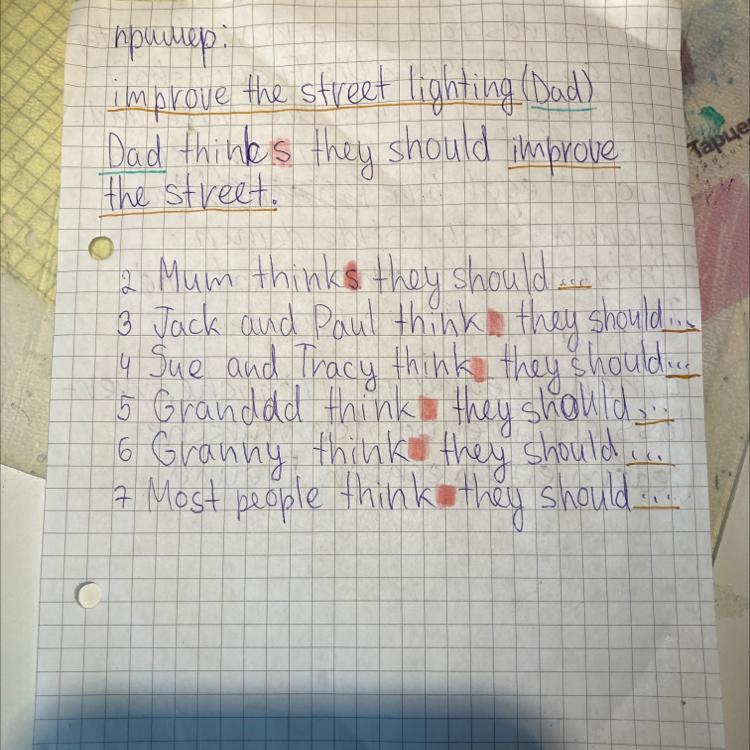 пример:
improve the street lighting (Dad)
Dad thinks they should improve
the street.
2 Mum thinks they should...
3 Jack and Paul think they should...
4 Sue and Tracy think they should...
5 Granddad think they should...
6 Granny think they should...
7 Most people think they should...